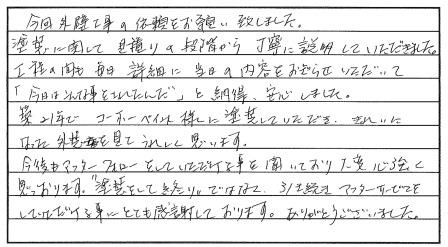 今回外壁工事の依頼をお願い致しました。
塗装に関して見積りの段階から丁寧に説明していただきました。
工程の間も毎日詳細に当日の内容をお知らせいただいて
「今日はこんな事をしたんだ」と納得、安心しました。
築21年でコーホーペイント様に塗装していただき、きれいに
なった外装を見てうれしく思います。
今後もアフターフォローをしていただける事を聞いており大変心強く
思っております。"塗装をして終り"ではなく、引き続きアフターサービスを
していただける事にとても感謝しております。ありがとうございました。